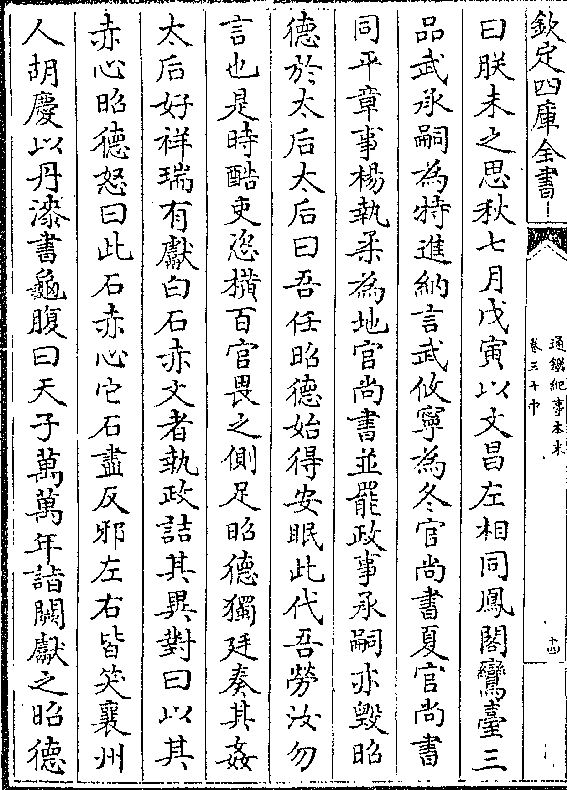 欽定四庫全書
通鑑紀事本末
卷三十中
十四
曰朕未之思秋七月戊寅以文昌左相同鳳閣鸞臺三
品武承嗣為特進納言武攸寧為冬官尚書夏官尚書
同平章事楊執柔為地官尚書並罷政事承嗣亦毀昭
德於太后太后曰吾任昭德始得安眠此代吾勞汝勿
言也是時酷吏恣橫百官畏之側足昭德獨廷奏其姦
太后好祥瑞有獻白石赤文者執政詰其異對曰以其
赤心昭德怒曰此石赤心它石盡反邪左右皆笑襄州
人胡慶以丹漆書龜腹曰天子萬萬年詣闕獻之昭德